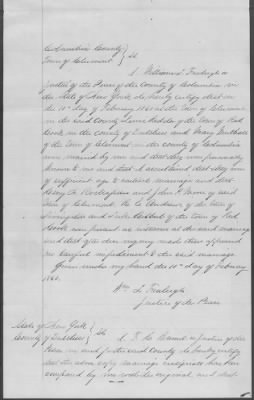 Columbia County
Town of Clermont } ss
I, William L Fraleigh a
Justice of the Peace of the County of Columbia in
the State of New York do hereby certify that on
the 10th day of February 1860 at the Town of Clermont
in the said County of the Town of Red
Hook in the county of Dutchess and Mary
of the Town of Clermont in the county of Columbia
were married by me and that they were personally
known to me and that I ascertained that they were
of sufficient age to contract marriage and that
Henry and John of said
Town of Clermont, of the Town of
Livingston and of the town of Red
Hook were present as witnesses at the said marriage
and that after due enquiry made there appeared
no lawful impediment to the said marriage
Given under my hand this 10th day of February
1860.
Wm L Fraleigh
Justice of the Peace
State of New York
County of Dutchess } ss
I, a Justice of the
Peace in and for the said County do hereby certify
that the above copy marriage certificate has been
compared by me with the original, and that